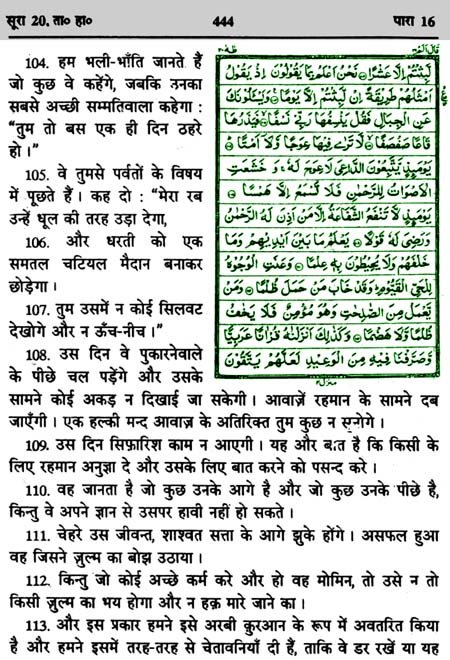 सूरा 20. ता० हा०
444
पारा 16
104. हम भली-भाँति जानते हैं
जो कुछ वे कहेंगे, जबकि उनका
सबसे अच्छी सम्मतिवाला कहेगा :
“तुम तो बस एक ही दिन ठहरे
हो।”
105. वे तुमसे पर्वतों के विषय
में पूछते हैं। कह दो : “मेरा रब
उन्हें धूल की तरह उड़ा देगा,
106. और धरती को एक
समतल चटियल मैदान बनाकर
छोड़ेगा।
107. तुम उसमें न कोई सिलवट
देखोगे और न ऊँच-नीच।”
108. उस दिन वे पुकारनेवाले
के पीछे चल पड़ेंगे और उसके
طه ٢٠
قال الم ١٦
لَّبِثْتُمْ إِلَّا عَشْرًا ۝ نَحْنُ أَعْلَمُ بِمَا يَقُولُونَ إِذْ يَقُولُ
أَمْثَلُهُمْ طَرِيقَةً إِن لَّبِثْتُمْ إِلَّا يَوْمًا ۝ وَيَسْـَٔلُونَكَ
عَنِ الْجِبَالِ فَقُلْ يَنسِفُهَا رَبِّي نَسْفًا ۝ فَيَذَرُهَا
قَاعًا صَفْصَفًا ۝ لَّا تَرَىٰ فِيهَا عِوَجًا وَلَا أَمْتًا ۝
يَوْمَئِذٍ يَتَّبِعُونَ الدَّاعِيَ لَا عِوَجَ لَهُ ۚ وَخَشَعَتِ
الْأَصْوَاتُ لِلرَّحْمَٰنِ فَلَا تَسْمَعُ إِلَّا هَمْسًا ۝
يَوْمَئِذٍ لَّا تَنفَعُ الشَّفَاعَةُ إِلَّا مَنْ أَذِنَ لَهُ الرَّحْمَٰنُ
وَرَضِيَ لَهُ قَوْلًا ۝ يَعْلَمُ مَا بَيْنَ أَيْدِيهِمْ وَمَا
خَلْفَهُمْ وَلَا يُحِيطُونَ بِهِ عِلْمًا ۝ وَعَنَتِ الْوُجُوهُ
لِلْحَيِّ الْقَيُّومِ ۖ وَقَدْ خَابَ مَنْ حَمَلَ ظُلْمًا ۝ وَمَن
يَعْمَلْ مِنَ الصَّالِحَاتِ وَهُوَ مُؤْمِنٌ فَلَا يَخَافُ
ظُلْمًا وَلَا هَضْمًا ۝ وَكَذَٰلِكَ أَنزَلْنَاهُ قُرْآنًا عَرَبِيًّا
وَصَرَّفْنَا فِيهِ مِنَ الْوَعِيدِ لَعَلَّهُمْ يَتَّقُونَ
सामने कोई अकड़ न दिखाई जा सकेगी। आवाज़ें रहमान के सामने दब
जाएँगी। एक हल्की मन्द आवाज़ के अतिरिक्त तुम कुछ न सुनोगे।
109. उस दिन सिफ़ारिश काम न आएगी। यह और बात है कि किसी के
लिए रहमान अनुज्ञा दे और उसके लिए बात करने को पसन्द करे।
110. वह जानता है जो कुछ उनके आगे है और जो कुछ उनके पीछे है,
किन्तु वे अपने ज्ञान से उसपर हावी नहीं हो सकते।
111. चेहरे उस जीवन्त, शाश्वत सत्ता के आगे झुके होंगे। असफल हुआ
वह जिसने ज़ुल्म का बोझ उठाया।
112. किन्तु जो कोई अच्छे कर्म करे और हो वह मोमिन, तो उसे न तो
किसी ज़ुल्म का भय होगा और न हक़ मारे जाने का।
113. और इस प्रकार हमने इसे अरबी क़ुरआन के रूप में अवतरित किया
है और हमने इसमें तरह-तरह से चेतावनियाँ दी हैं, ताकि वे डर रखें या यह